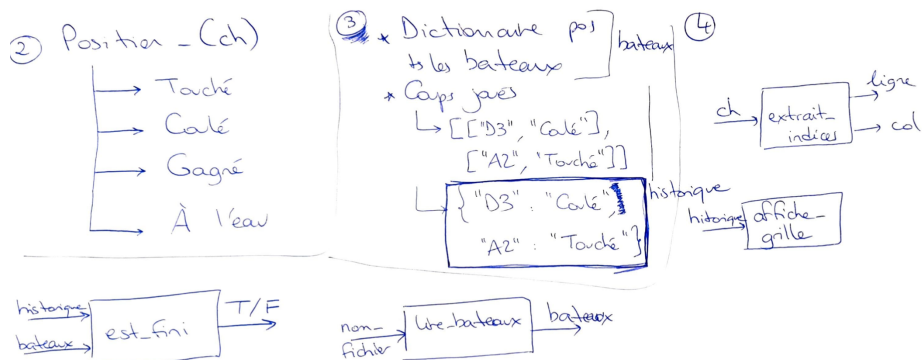 ② Position _ (ch)
Touché
Coulé
Gagné
À l'eau
③ * Dictionnaire pos
ts les bateaux
bateaux
* Coups joués
[["D3", "Coulé"],
["A2", "Touché"]]
{"D3" : "Coulé",
"A2" : "Touché"}
historique
④
ch
extrait_
indices
ligne
col
historique
affiche_
grille
historique
bateaux
est_fini
T/F
nom_
fichier
lire_bateaux
bateaux